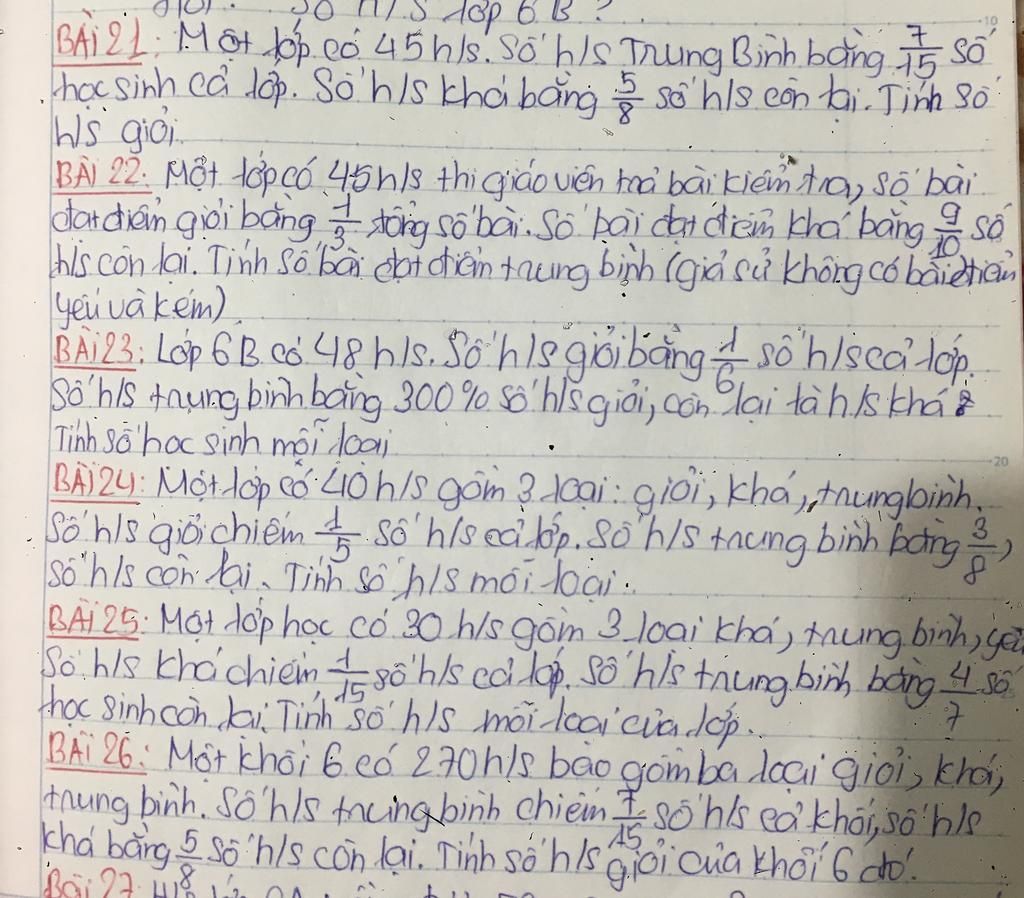 giỏi. Số h/s lớp 6B?
BÀI 21: Một lớp có 45 h/s. Số h/s Trung Bình bằng 7/15 số
học sinh cả lớp. Số h/s khá bằng 5/8 số h/s còn lại. Tính số
h/s giỏi.
BÀI 22: Một lớp có 45 h/s thi giáo viên trả bài kiểm tra, số bài
đạt điểm giỏi bằng 1/3 tổng số bài. Số bài đạt điểm khá bằng 9/10 số
h/s còn lại. Tính số bài đạt điểm trung bình (giả sử không có bài điểm
yếu và kém)
BÀI 23: Lớp 6B có 48 h/s. Số h/s giỏi bằng 1/6 số h/s cả lớp.
Số h/s trung bình bằng 300% số h/s giỏi, còn lại là h/s khá
Tính số học sinh mỗi loại
BÀI 24: Một lớp có 40 h/s gồm 3 loại: giỏi, khá, trung bình.
Số h/s giỏi chiếm 1/5 số h/s cả lớp. Số h/s trung bình bằng 3/8
số h/s còn lại. Tính số h/s mỗi loại.
BÀI 25: Một lớp học có 30 h/s gồm 3 loại khá, trung bình, yếu
Số h/s khá chiếm 1/15 số h/s cả lớp. Số h/s trung bình bằng 4/7 số
học sinh còn lại. Tính số h/s mỗi loại của lớp.
BÀI 26: Một khối 6 có 270 h/s bao gồm ba loại giỏi, khá,
trung bình. Số h/s trung bình chiếm 7/15 số h/s cả khối, số h/s
khá bằng 5/8 số h/s còn lại. Tính số h/s giỏi của khối 6 đó.
Bài 27:
10
20